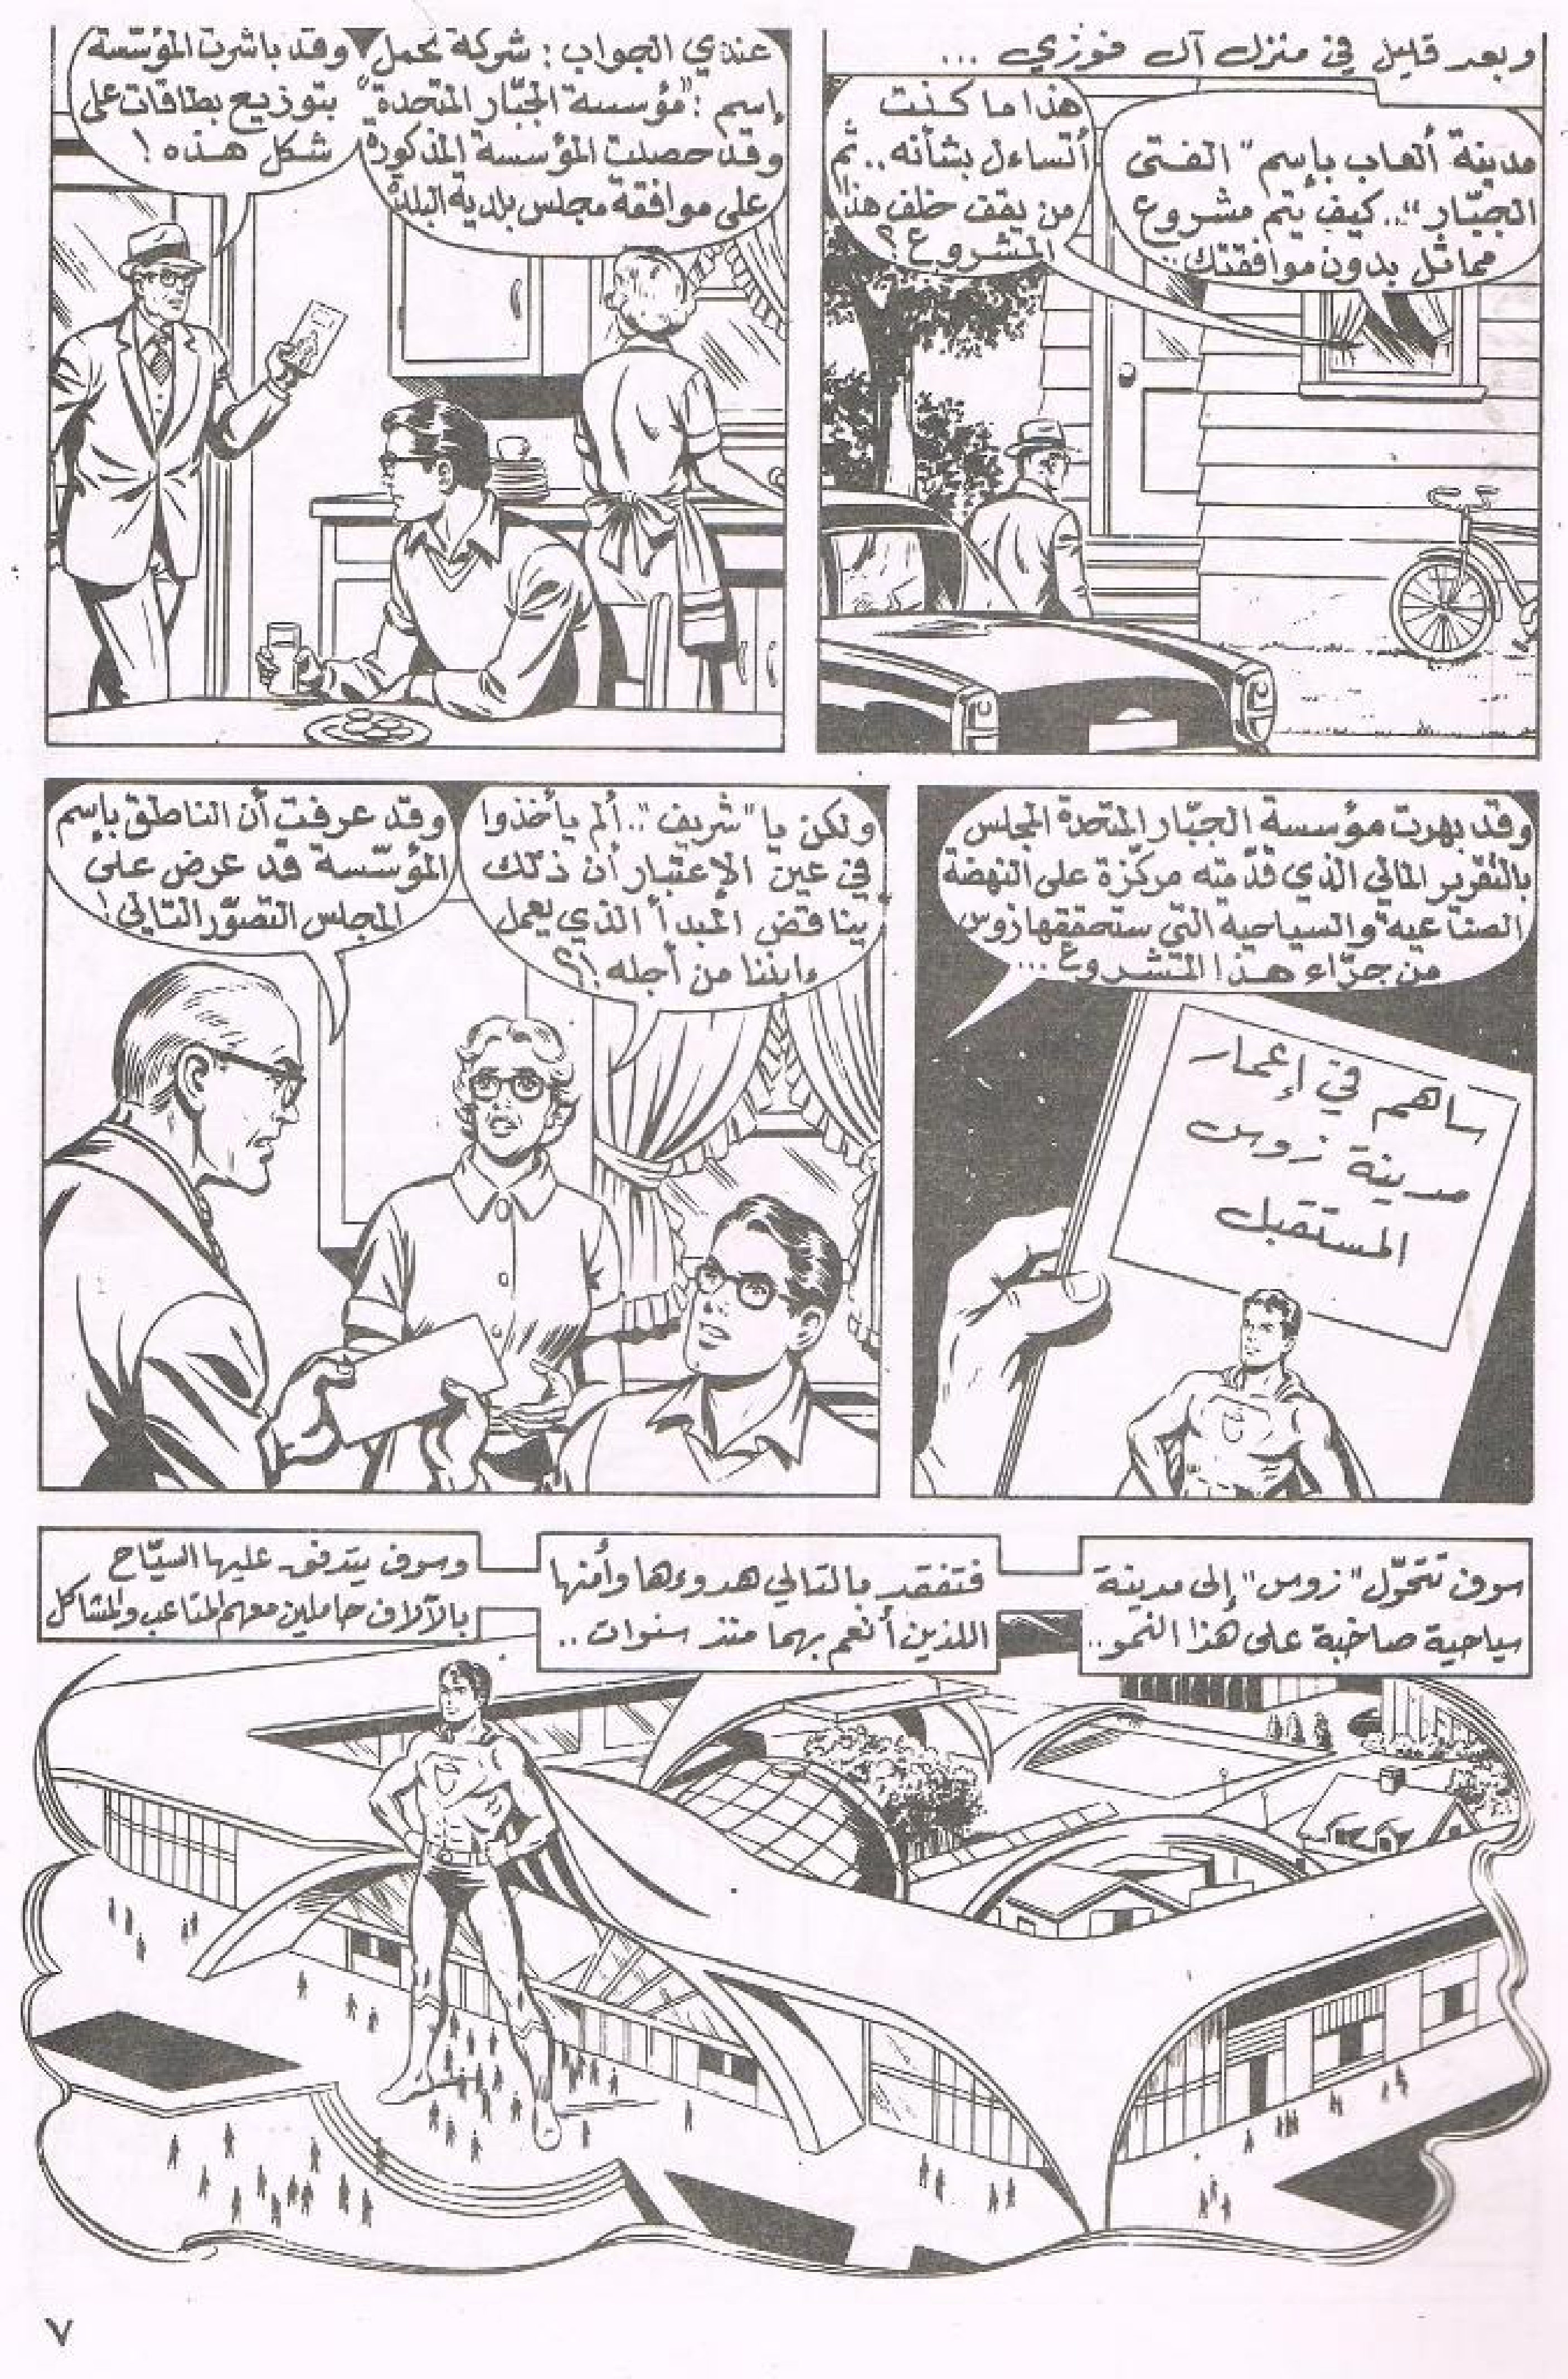 وبعد قليل في منزل آل فوزي ...
مدينة ألعاب بإسم "الفتى
الجبّار".. كيف يتم مشروع
مماثل بدون موافقتك..
هذا ما كنت
أتساءل بشأنه.. ثم
من يقف خلف هذا
المشروع؟
عندي الجواب: شركة تحمل
إسم: "مؤسسة الجبّار المتحدة"
وقد حصلت المؤسسة المذكورة
على موافقة مجلس بلدية البلدة
وقد باشرت المؤسّسة
بتوزيع بطاقات على
شكل هذه!
وقد بهرت مؤسسة الجبّار المتحدة المجلس
بالتقرير المالي الذي قدّمته مركّزة على النهضة
الصناعية والسياحية التي ستحققها زوس
من جرّاء هذا المشروع...
ساهم في إعمار
مدينة زوس
المستقبل
ولكن يا "شريف".. ألم يأخذوا
في عين الإعتبار أن ذلك
يناقض المبدأ الذي يعمل
إبننا من أجله!؟
وقد عرفت أن الناطق بإسم
المؤسّسة قد عرض على
المجلس التصوّر التالي!
سوف تتحوّل "زوس" إلى مدينة
سياحية صاخبة على هذا النحو..
فتفقد بالتالي هدوءها وأمنها
اللذين أنعم بهما منذ سنوات..
وسوف يتدفق عليها السيّاح
بالآلاف حاملين معهم المتاعب والمشاكل
٧